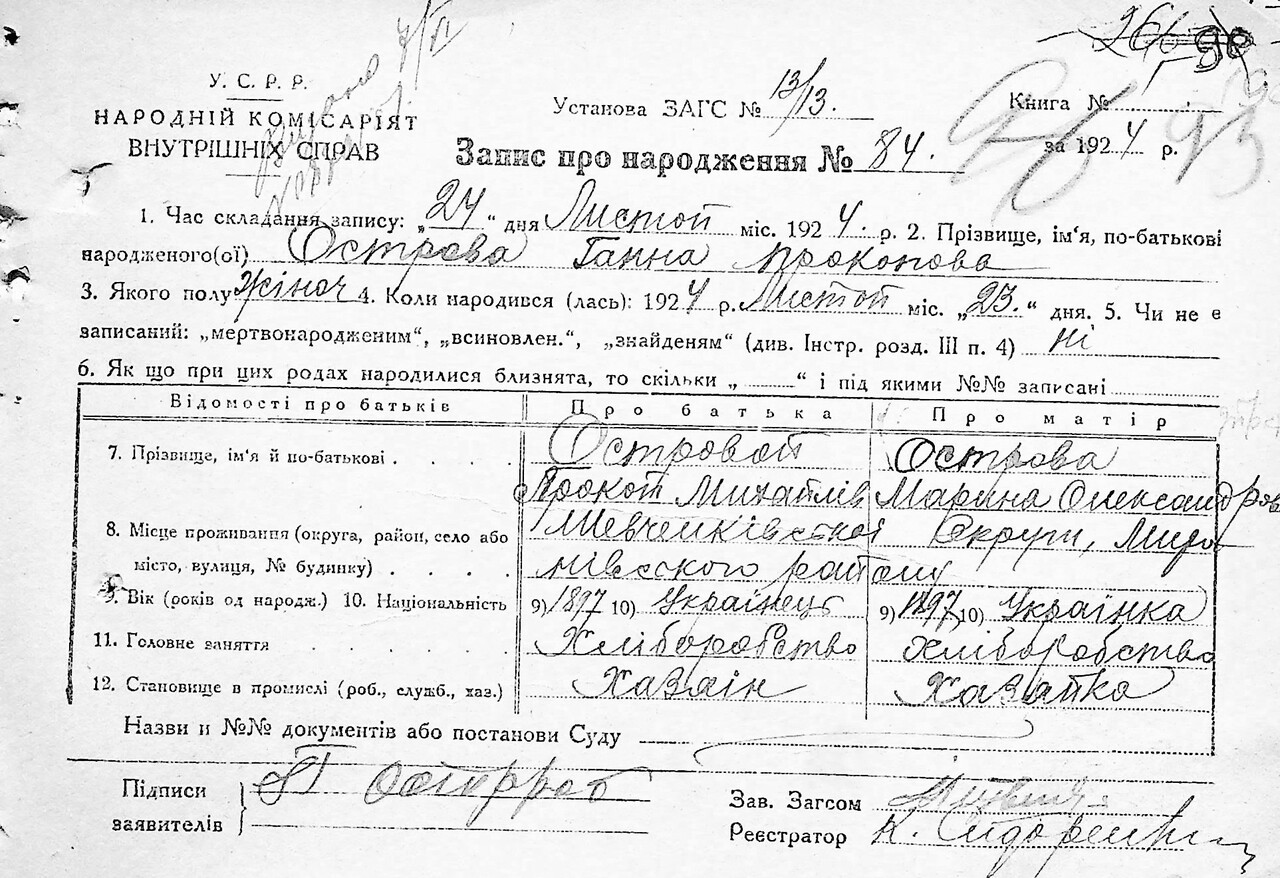 У. С. Р. Р.
НАРОДНІЙ КОМІСАРІЯТ
ВНУТРІШНІХ СПРАВ
Установа ЗАГС № 13/13.
Книга №
за 1924 р.
93
Запис про народження № 84.
1. Час складання запису: „24“ дня Листоп міс. 1924. р. 2. Прізвище, ім‘я, по-батькові
народженого(ої) Острова Ганна Прокопова
3. Якого полу Жіноч 4. Коли народився (лась): 1924 р. Листоп міс. „23.“ дня. 5. Чи не є
записаний: „мертвонародженим“, „всиновлен.“, „знайденям“ (див. Інстр. розд. III п. 4) ні
6. Як що при цих родах народилися близнята, то скільки „ “ і під якими №№ записані
Відомості про батьків Про батька Про матір
7. Прізвище, ім‘я й по-батькові Островой Острова
Прокоп Михайлів Марина Олександров
8. Місце проживання (округа, район, село або Шевченківської Округи, Миро
місто, вулиця, № будинку) нівського району
9. Вік (років од народж.) 10. Національність 9) 1897 10) Українець 9) 1897 10) Українка
11. Головне заняття Хліборобство Хліборобство
12. Становище в промислі (роб., служб., хаз.) Хазяін Хазяйка
Назви и №№ документів або постанови Суду
Підписи
заявителів
Зав. Загсом
Реєстратор К. Сидоренко